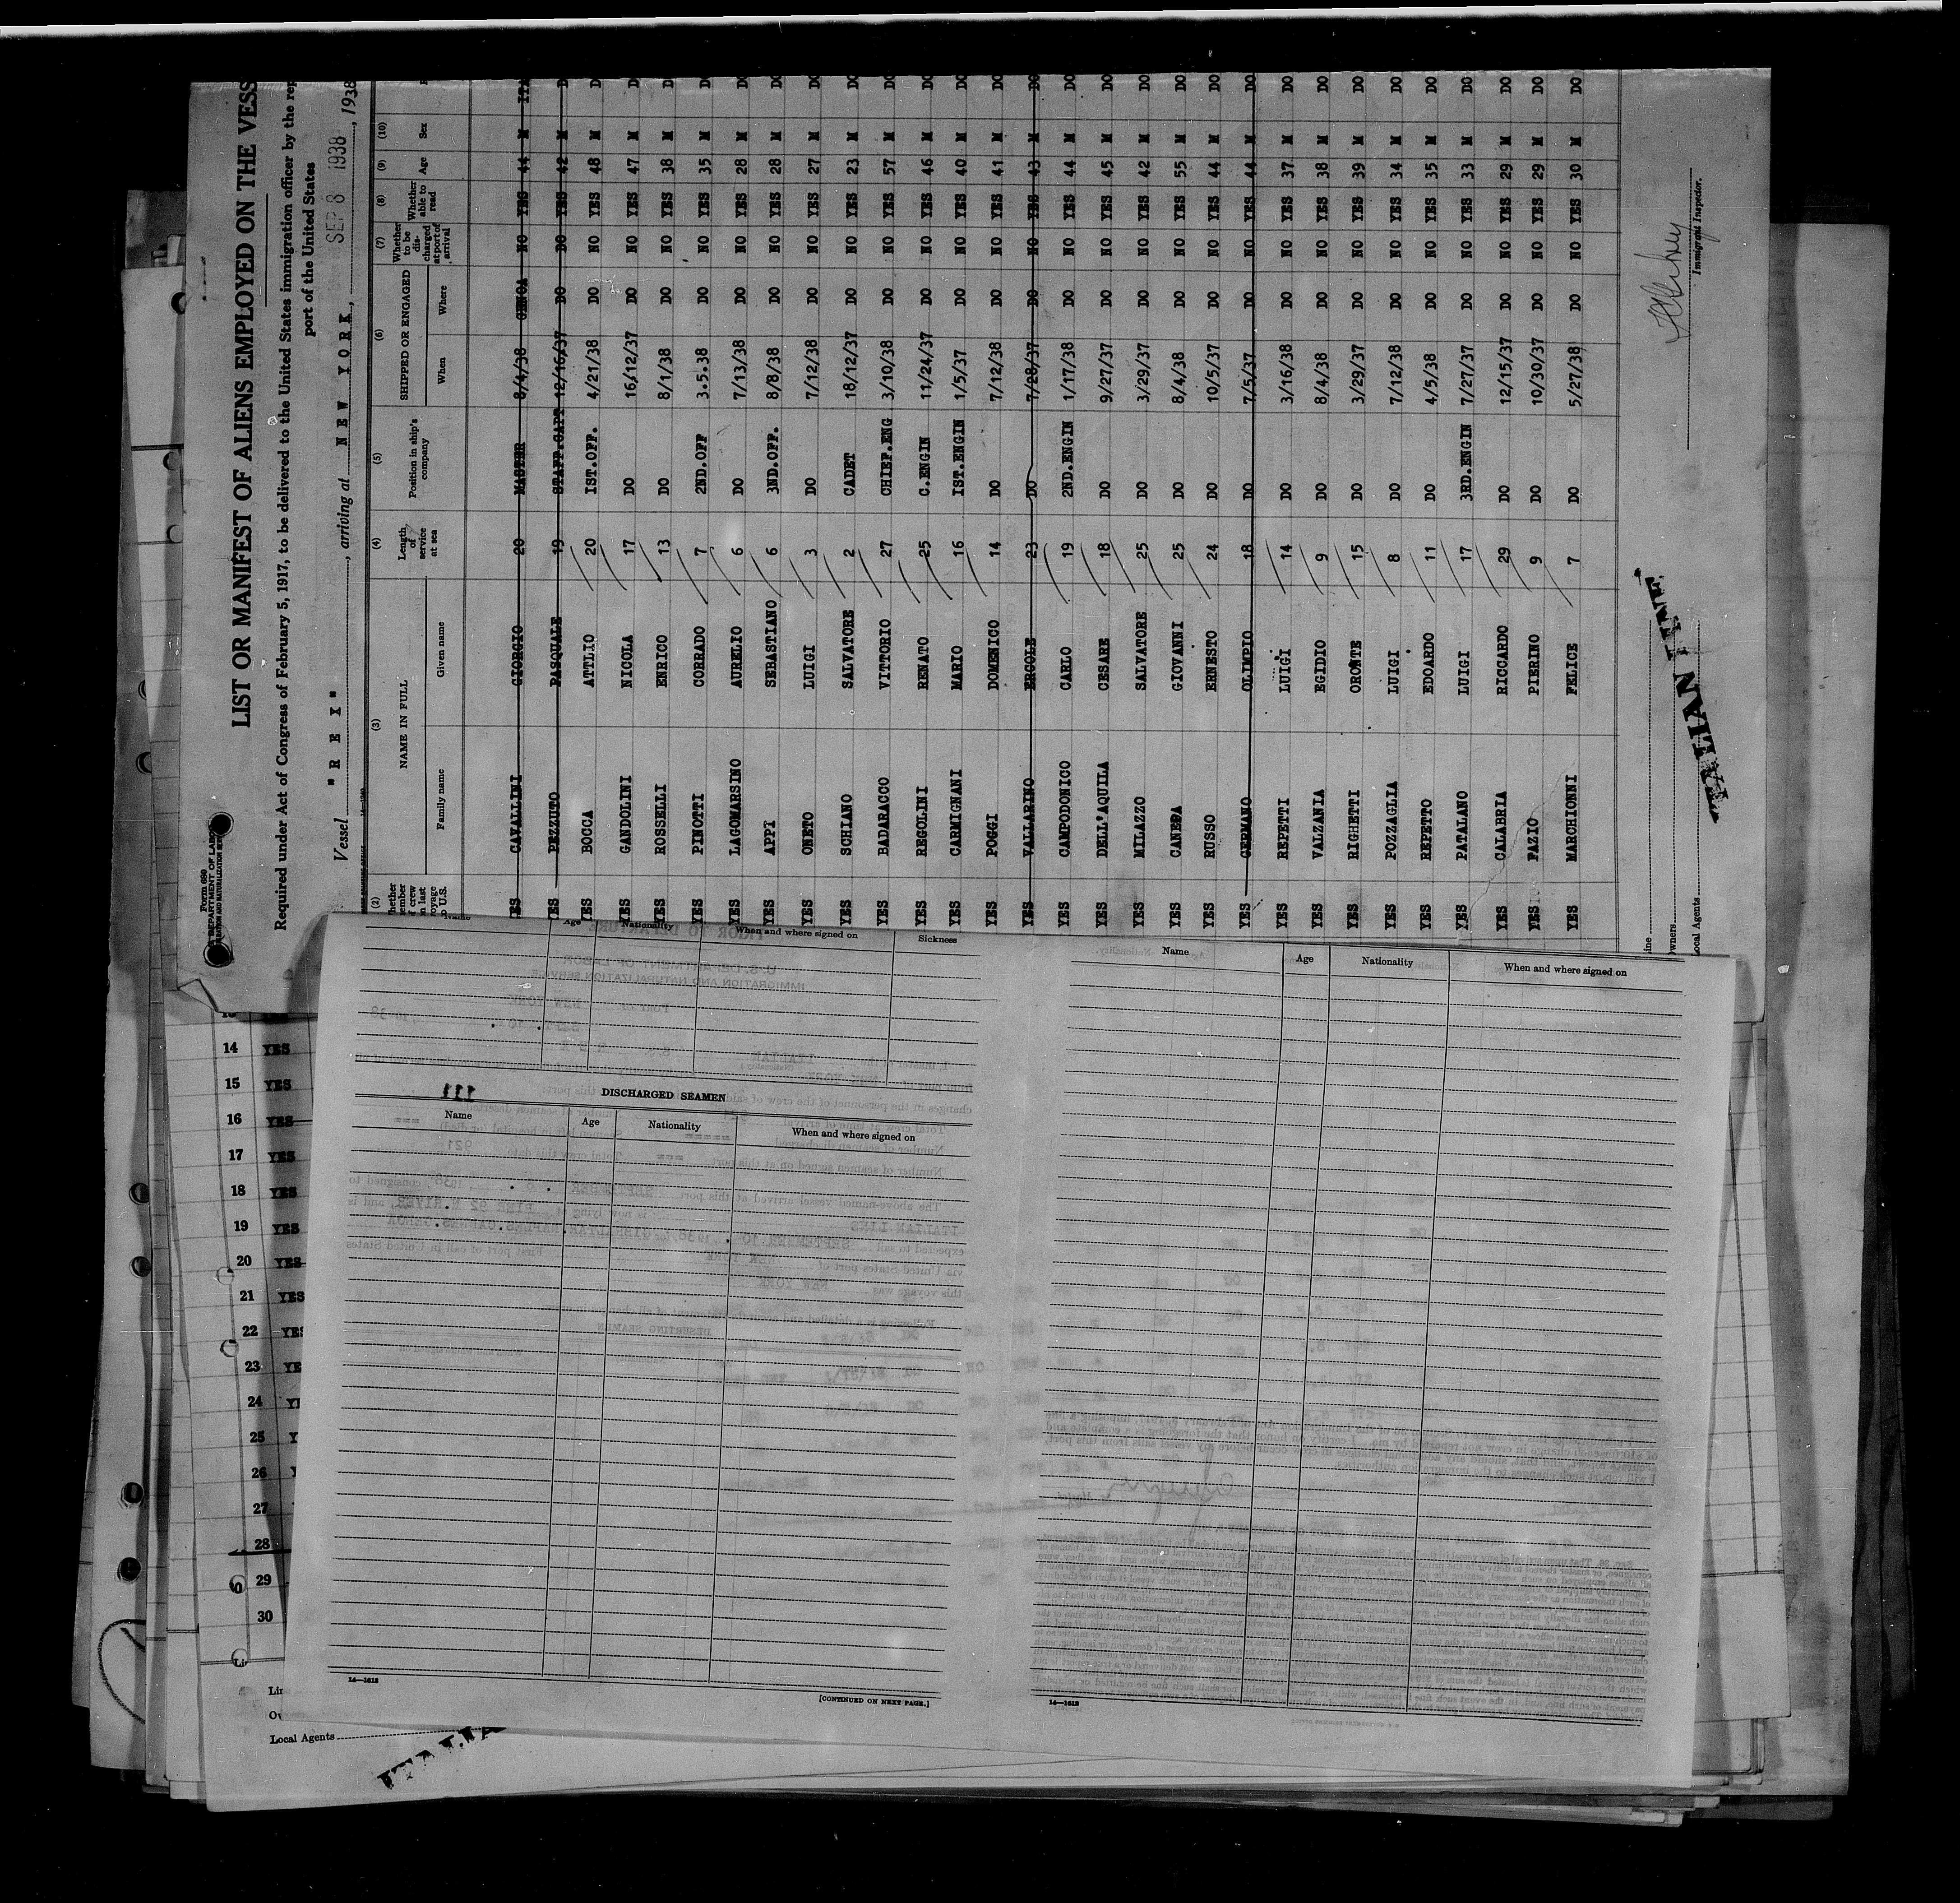 Form 680
LIST OR MANIFEST OF ALIENS EMPLOYED ON THE VESS
Required under Act of Congress of February 5, 1917, to be delivered to the United States immigration officer by the rep
port of the United States
Vessel "REX", arriving at NEW YORK, SEP 8 1938, 1938
(2) (3) (4) (5) (6) (7) (8) (9) (10)
NAME IN FULL Length of service at sea Position in ship's company SHIPPED OR ENGAGED Whether to be discharged at port of arrival Whether able to read Age Sex
Family name Given name When Where
YES CAVALLINI GIORGIO 20 MASTER 8/4/38 GENOA NO YES 44 M ITA
YES PEZZUTO PASQUALE 19 STAFF.CAPT 12/16/37 DO DO YES 42 M D
YES BOCCA ATTLIO 20 IST.OFF. 4/21/38 DO NO YES 48 M D
YES GANDOLINI NICOLA 17 DO 16/12/37 DO NO YES 47 M D
YES ROSSELLI ENRICO 13 DO 8/1/38 DO NO YES 38 M D
YES PINOTTI CORRADO 7 2ND.OFF 3.5.38 DO NO YES 35 M DO
YES LAGOMARSINO AURELIO 6 DO 7/13/38 DO NO YES 28 M DO
YES APPI SEBASTIANO 6 3ND.OFF. 8/8/38 DO NO YES 28 M DO
YES ONETO LUIGI 3 DO 7/12/38 DO NO YES 27 M DO
YES SCHIANO SALVATORE 2 CADET 18/12/37 DO NO YES 23 M DO
YES BADARACCO VITTORIO 27 CHIEF.ENG 3/10/38 DO NO YES 57 M DO
YES REGOLINI RENATO 25 C.ENGIN 11/24/37 DO NO YES 46 M DO
YES CARMIGNANI MARIO 16 IST.ENGIN 1/5/37 DO NO YES 40 M DO
YES POGGI DOMENICO 14 DO 7/12/38 DO NO YES 41 M DO
YES VALLARINO ERCOLE 23 DO 7/28/37 DO NO YES 43 M DO
YES CAMPODONICO CARLO 19 2ND.ENGIN 1/17/38 DO NO YES 44 M DO
YES DELL'AQUILA CESARE 18 DO 9/27/37 DO NO YES 45 M DO
YES MILAZZO SALVATORE 25 DO 3/29/37 DO NO YES 42 M DO
YES CANEPA GIOVANNI 25 DO 8/4/38 DO NO YES 55 M DO
YES RUSSO ERNESTO 24 DO 10/5/37 DO NO YES 44 M DO
YES GERMANO OLIMPIO 18 DO 7/5/37 DO NO YES 44 M DO
YES REPETTI LUIGI 14 DO 3/16/38 DO NO YES 37 M DO
YES VALZANIA EGIDIO 9 DO 8/4/38 DO NO YES 38 M DO
YES RIGHETTI ORONTE 15 DO 3/29/37 DO NO YES 39 M DO
YES POZZAGLIA LUIGI 8 DO 7/12/38 DO NO YES 34 M DO
YES REPETTO EDOARDO 11 DO 4/5/38 DO NO YES 35 M DO
YES PATALANO LUIGI 17 3RD.ENGIN 7/27/37 DO NO YES 33 M DO
YES CALABRIA RICCARDO 29 DO 12/15/37 DO NO YES 29 M DO
YES FAZIO PIERINO 9 DO 10/30/37 DO NO YES 29 M DO
YES MARCHIONNI FELICE 7 DO 5/27/38 DO NO YES 30 M DO
Immigrant Inspector.
Local Agents
ITALIAN LINE
Age Nationality When and where signed on Sickness
DISCHARGED SEAMEN
Name Age Nationality When and where signed on
14—1613
[CONTINUED ON NEXT PAGE.]
Name Age Nationality When and where signed on
14—1613
14 YES
15 YES
16 YES
17 YES
18 YES
19 YES
20 YES
21 YES
22 YES
23 YE
24 Y
25 Y
26
27
28
29
30
Local Agents
ITALIA